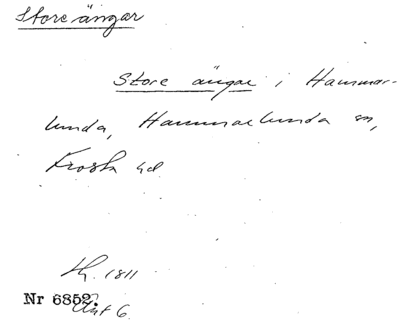 Store ängar
Store ängar i Hammar-
lunda, Hammarlunda sn,
Frosta hd
1811
Nr 6852.
Akt 6